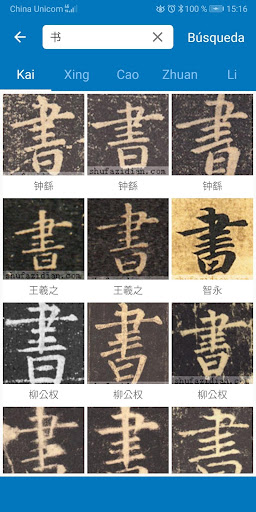 China Unicom 100 % 15:16
书 Búsqueda
Kai Xing Cao Zhuan Li
書 書 書
shufazidian.com
钟繇 钟繇 钟繇
書 書 書
shufazidian.com
王羲之 王羲之 智永
書 書 書
shufazidian.com
柳公权 柳公权 柳公权
書 書 書